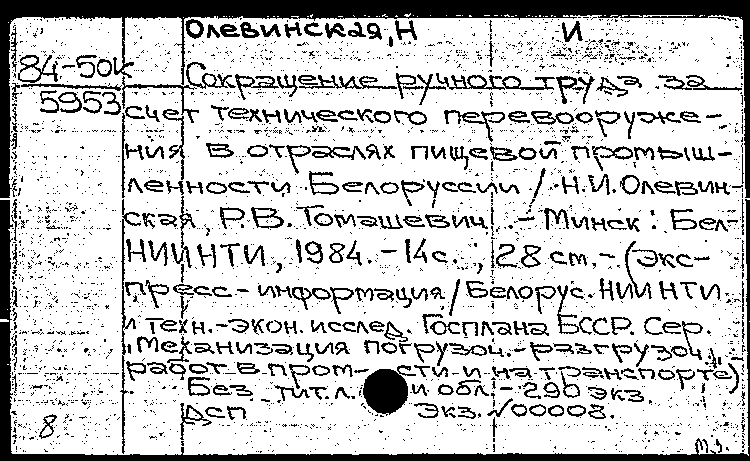 Олевинская, Н И
84-50к
5953
Сокращение ручного труда за
счет технического перевооруже-
ния в отраслях пищевой промыш-
ленности Белоруссии / Н.И. Олевин-
ская, Р.В. Томашевич. - Минск: Бел-
НИИНТИ, 1984. - 14с.; 28 см. - (Экс-
пресс-информация / Белорус. НИИ НТИ
и техн.-экон. исслед. Госплана БССР. Сер.
"Механизация погрузоч.-разгрузоч.
работ в пром-сти и на транспорте")
Без тит.л. и обл. - 290 экз.
ДСП Экз. √00008.
8